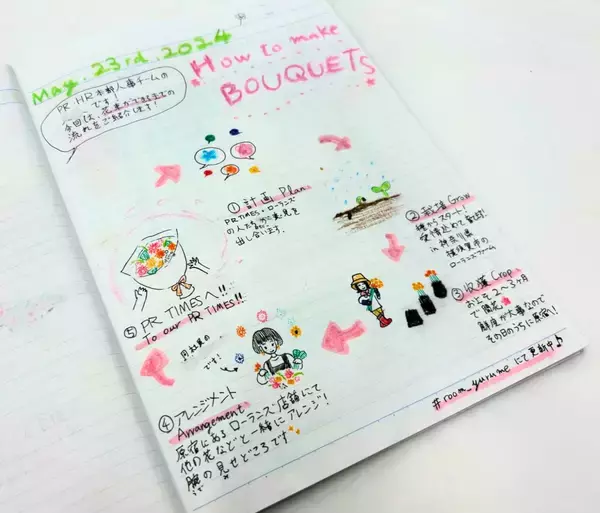 May. 23rd. 2024
How to make
BOUQUETS
PR・HR本部人事チームの
です!
今回は、花束ができるまでの
流れをご紹介します!
① 計画 Plan
PR TIMES・ローランズ
の人たちで意見を
出し合います。
② 栽培 Grow
種からスタート。
愛情込めて栽培!
in 神奈川県
ローランズファーム
③ 収穫 Crop
およそ2〜3ヶ月
で開花
鮮度が大事なので
その日のうちに直送!
④ アレンジメント
Arrangement
原宿にあるローランズ店舗にて
他の花などと一緒にアレンジ!
腕の見せどころです
⑤ PR TIMESへ!!
To our PR TIMES!!
です!
#room_yurumeにて更新中♪